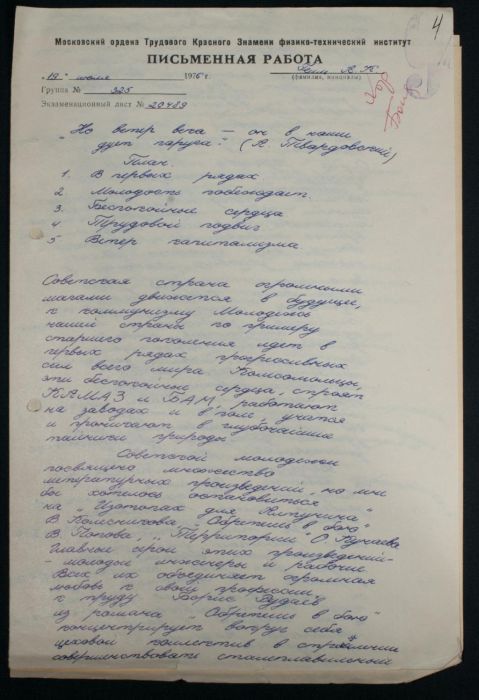 4
Московский ордена Трудового Красного Знамени физико-технический институт
ПИСЬМЕННАЯ РАБОТА
"19" июля 1976 г.
(фамилия, инициалы)
Группа № 325
Экзаменационный лист № 20489
"Но ветер века — он в наши
дует паруса". (А Твардовский)
План.
1. В первых рядах
2 Молодость побеждает.
3. Беспокойные сердца
4 Трудовой подвиг
5 Ветер капитализма
Советская страна огромными
шагами движется в будущее,
к коммунизму Молодёжь
нашей страны по примеру
старшего поколения идет в
первых рядах прогрессивных
сил всего мира Комсомольцы,
эти беспокойные сердца, строят
КАМАЗ и БАМ, работают
на заводах и в поле, учатся
и проникают в глубочайшие
тайники природы
Советской молодежи
посвящено множество
литературных произведений, но мне
бы хотелось остановиться
на "Изотопах для Алтунина"
В Колесникова "Обретешь в бою"
В. Попова, "Территории" О Куваева
Главные герои этих произведений-
- молодые инженеры и рабочие
Всех их объединяет огромная
любовь к своей профессии,
к труду Борис Рудаев
из романа "Обретешь в бою"
концентрирует вокруг себя
цеховой коллектив в стремлении
совершенствовать сталеплавильный